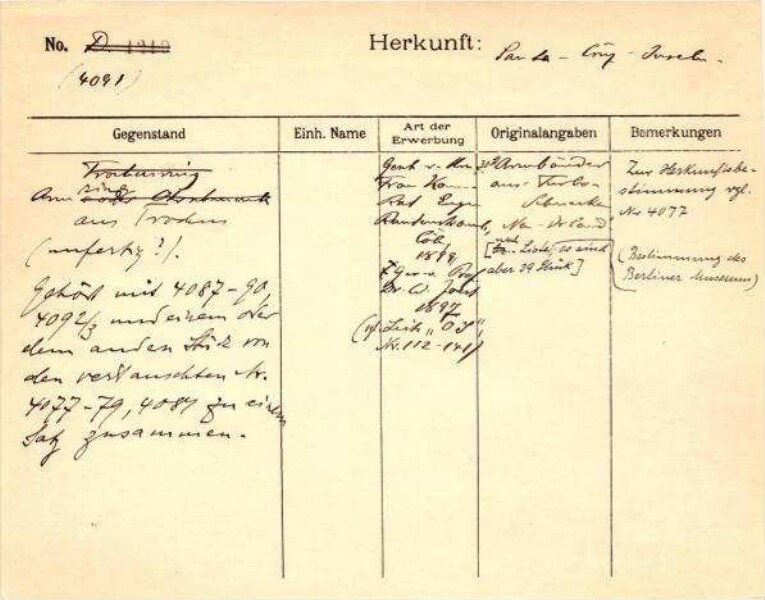 No. D. 1210
(4091)
Herkunft: Santa - Cruz - Inseln.
Gegenstand
Einh. Name
Art der Erwerbung
Originalangaben
Bemerkungen
Armring
aus Trochus
(unfertig?).
Gehört mit 4087-90,
4092/3 und einem oder
dem anderen Stück von
den vertauschten Nr.
4077-79, 4084 zu einem
Satz zusammen.
Gesch. v.
Frau
Rat Eugen
Rautenstrauch,
Cöln
1899
Prof.
Dr. W. Joest
1897
Liste "
Nr. 112-141)
30 Armbänder
aus Turbo-
Schnecke
[nach Liste, es sind
aber 29 Stück]
Zur Herkunftsbe-
stimmung vgl.
Nr 4077
(Bestimmung des
Berliner Museums)